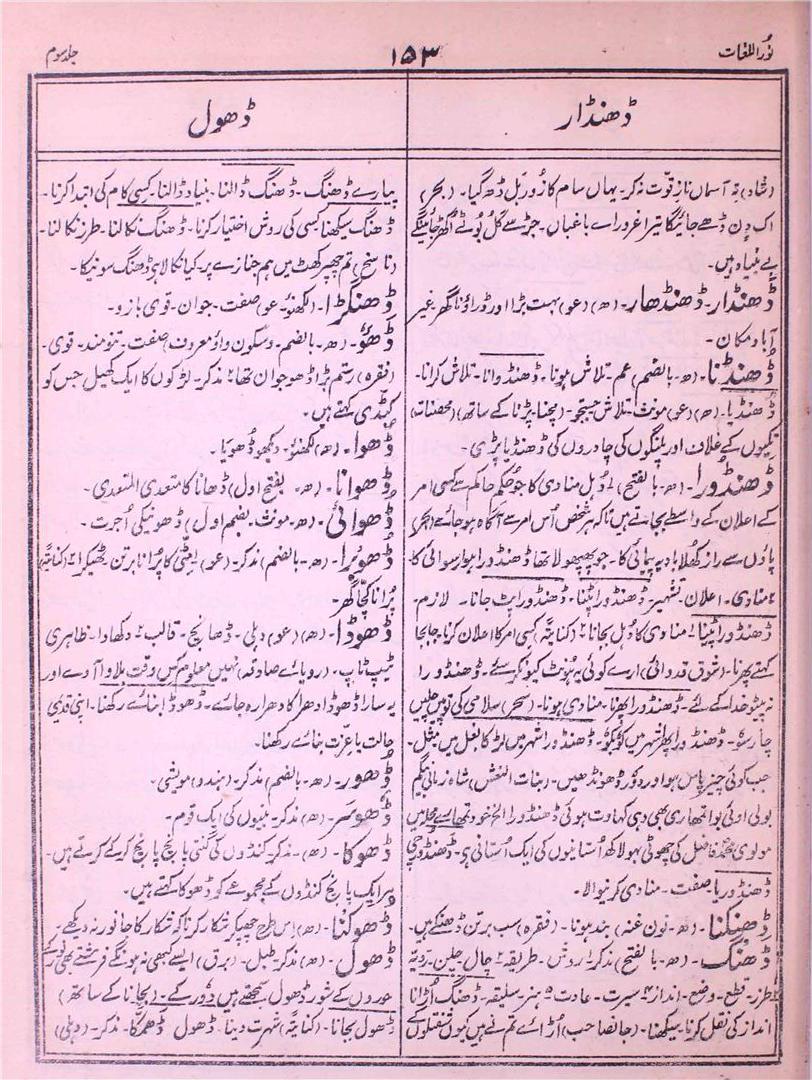 نُور اللغات
۱۵۳
جلد سوم
ڈھنڈار
ڈھول
(شاد) نہ آسماں نازِ قوّت نہ کر۔ یہاں سام کا زورِ بَل ڈھ گیا۔ (بحر)
اک دن ڈھے جائیگا تیرا غرور اے باغباں۔ جڑ سے گل بُوٹے اُکھڑ جائینگے
بے بنیاد ہیں۔
ڈھنڈار۔ ڈھنڈھار۔ (ھ) (عو) بہت بڑا اور ڈراؤنا گھر غیر
آباد مکان۔
ڈھنڈنا۔ (ھ۔ بالضم) عم۔ تلاش ہونا۔ ڈھنڈوانا۔ تلاش کرانا۔
ڈھنڈیا۔ (ھ) (عو) مونث۔ تلاش جستجو۔ (مچنا پڑنا کے ساتھ) (محصنات)
تکیوں کے غلاف اور پلنگوں کی چادروں کی ڈھنڈیا پڑی۔
ڈھنڈورا۔ (ھ۔ بالفتح) ۱۔ ڈہل منادی کا جو حکم حاکم سے کسی امر
کے اعلان کے واسطے بجاتے ہیں تاکہ ہر شخص اُس امر سے آگاہ ہو جائے (بحر)
پاؤں سے راز کھلا بادیہ پیمائی کا۔ جو پھپھولا تھا ڈھنڈورا ہوا رسوائی کا
۲ منادی۔ اعلان۔ تشہیر۔ ڈھنڈورا پٹنا۔ ڈھنڈورا پٹ جانا۔ لازم۔
ڈھنڈورا پیٹنا ۱ منادی کا ڈہل بجانا ۲ (کنایۃً) کسی امر کا اعلان کرنا۔ جابجا
کہتے پھرنا۔ (شوق قدوائی) ارے کوئی یہ ہونٹ کیونکر سئے۔ ڈھنڈورا
نہ پیٹو خدا کے لئے۔ ڈھنڈورا پھرنا۔ منادی ہونا۔ (سحر) سلامی کی توپیں چلیں
چار سُو۔ ڈھنڈورا پھرا شہر میں کو بکو۔ ڈھنڈورا شہر میں لڑکا بغل میں مثل۔
جب کوئی چیز پاس ہو اور دُور ڈھونڈھیں۔ (بنات النعش) شاہ زمانی بیگم
بولی اوئی بوا تمہاری بھی وہی کہاوت ہوئی ڈھنڈورا الخ خود تمھارے محلے میں
مولوی محمد فاضل کی چھوٹی بہو لاکھ اُستانیوں کی ایک اُستانی ہے۔ ڈھنڈورچی
ڈھنڈوریا صفت۔ منادی کرنیوالا۔
ڈھنکنا۔ (ھ۔ نون غنہ) بند ہونا۔ (فقرہ) سب برتن ڈھنکے ہیں۔
ڈھنگ۔ (ھ۔ بالفتح) مذکر ۱ روش۔ طریقہ ۲ چال چلن۔ رویّہ
۳ طرز۔ قطع۔ وضع۔ انداز ۴ سیرت۔ عادت ۵ ہنر سلیقہ۔ ڈھنگ اُڑانا
انداز کی نقل کرنا۔ سیکھنا۔ (جانصاحب) اُڑائے تم نے ہیں کیوں
پیارے ڈھنگ۔ ڈھنگ ڈالنا۔ بنیاد ڈالنا۔ کسی کام کی ابتدا کرنا۔
ڈھنگ سیکھنا کسی کی روش اختیار کرنا۔ ڈھنگ نکالنا۔ طرز نکالنا۔
(ناسخ) تم چھپرکھٹ میں ہم جنازے پر۔ کیا نکالا ہے ڈھنگ سونیکا۔
ڈھنگڑا۔ (لکھنؤ۔ عو) صفت۔ جوان۔ قوی بازو۔
ڈھؤ۔ (ھ۔ بالضم۔ و سکون واؤ معروف) صفت۔ تنومند۔ قوی۔
(فقرہ) رستم بڑا ڈھو جوان تھا ۲ مذکر۔ لڑکوں کا ایک کھیل جس کو
کبڈی کہتے ہیں۔
ڈُھوا۔ (ھ) لکھنؤ۔ دکھو ڈھویا۔
ڈھوانا۔ (ھ۔ بفتح اول) ڈھانا کا متعدی المتعدی۔
ڈُھوائی۔ (ھ۔ مونث۔ بضم اول) ڈھونیکی اُجرت۔
ڈھوبرا۔ (ھ۔ بالضم) مذکر۔ (عو) ۱ مٹّی کا پُرانا برتن۔ ٹھیکرا ۲ (کنایۃً)
پُرانا کچّا گھر۔
ڈھوڈا۔ (ھ) (عو) دہلی۔ ڈھانچ۔ قالب ۲ دکھاوا۔ ظاہری
ٹیپ ٹاپ۔ (رویائے صادقہ) نہیں معلوم کس وقت بلاوا آوے اور
یہ سارا ڈھوڈا دھرا کا دھرا رہ جائے۔ ڈھوڈا بنائے رکھنا۔ اپنی قدیمی
حالت با عزت بنائے رکھنا۔
ڈھور۔ (ھ۔ بالضم) مذکر۔ (ہندو) مویشی۔
ڈھوسر۔ (ھ) مذکر۔ بنیوں کی ایک قوم۔
ڈھوکا۔ (ھ)۔ مذکر۔ کنڈوں کی گنتی پانچ پانچ کرکے کرتے ہیں۔
ہر ایک پانچ کنڈوں کے مجموعے کو ڈھوکا کہتے ہیں۔
ڈھوکنا۔ (ھ) اِس طرح چھپکر شکار کرنا کہ شکار کا جانور نہ دیکھے۔
ڈھول۔ (ھ) مذکر۔ طبل۔ (برق) ایسے کبھی نہ ہونگے فرشتے بھی
حوروں کے شور ڈھول سمجھتے ہیں دُور کے۔ (بجانا کے ساتھ)
ڈھول بجانا۔ (کنایۃً) شہرت دینا۔ ڈھول ڈھمکا۔ مذکر۔ (دہلی)